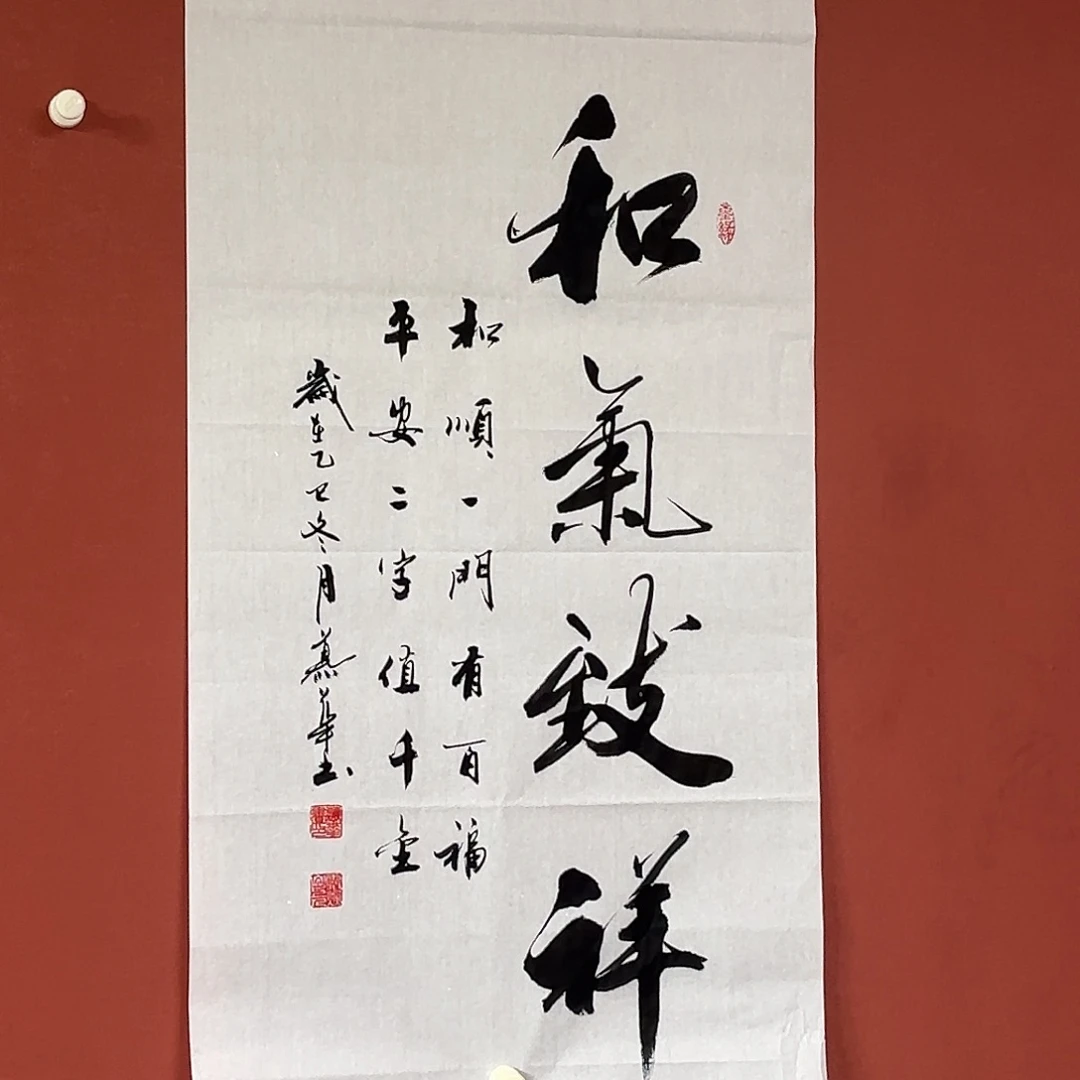 和氣致祥
和順一門有百福
平安二字值千金
歲在乙巳冬月慕華书